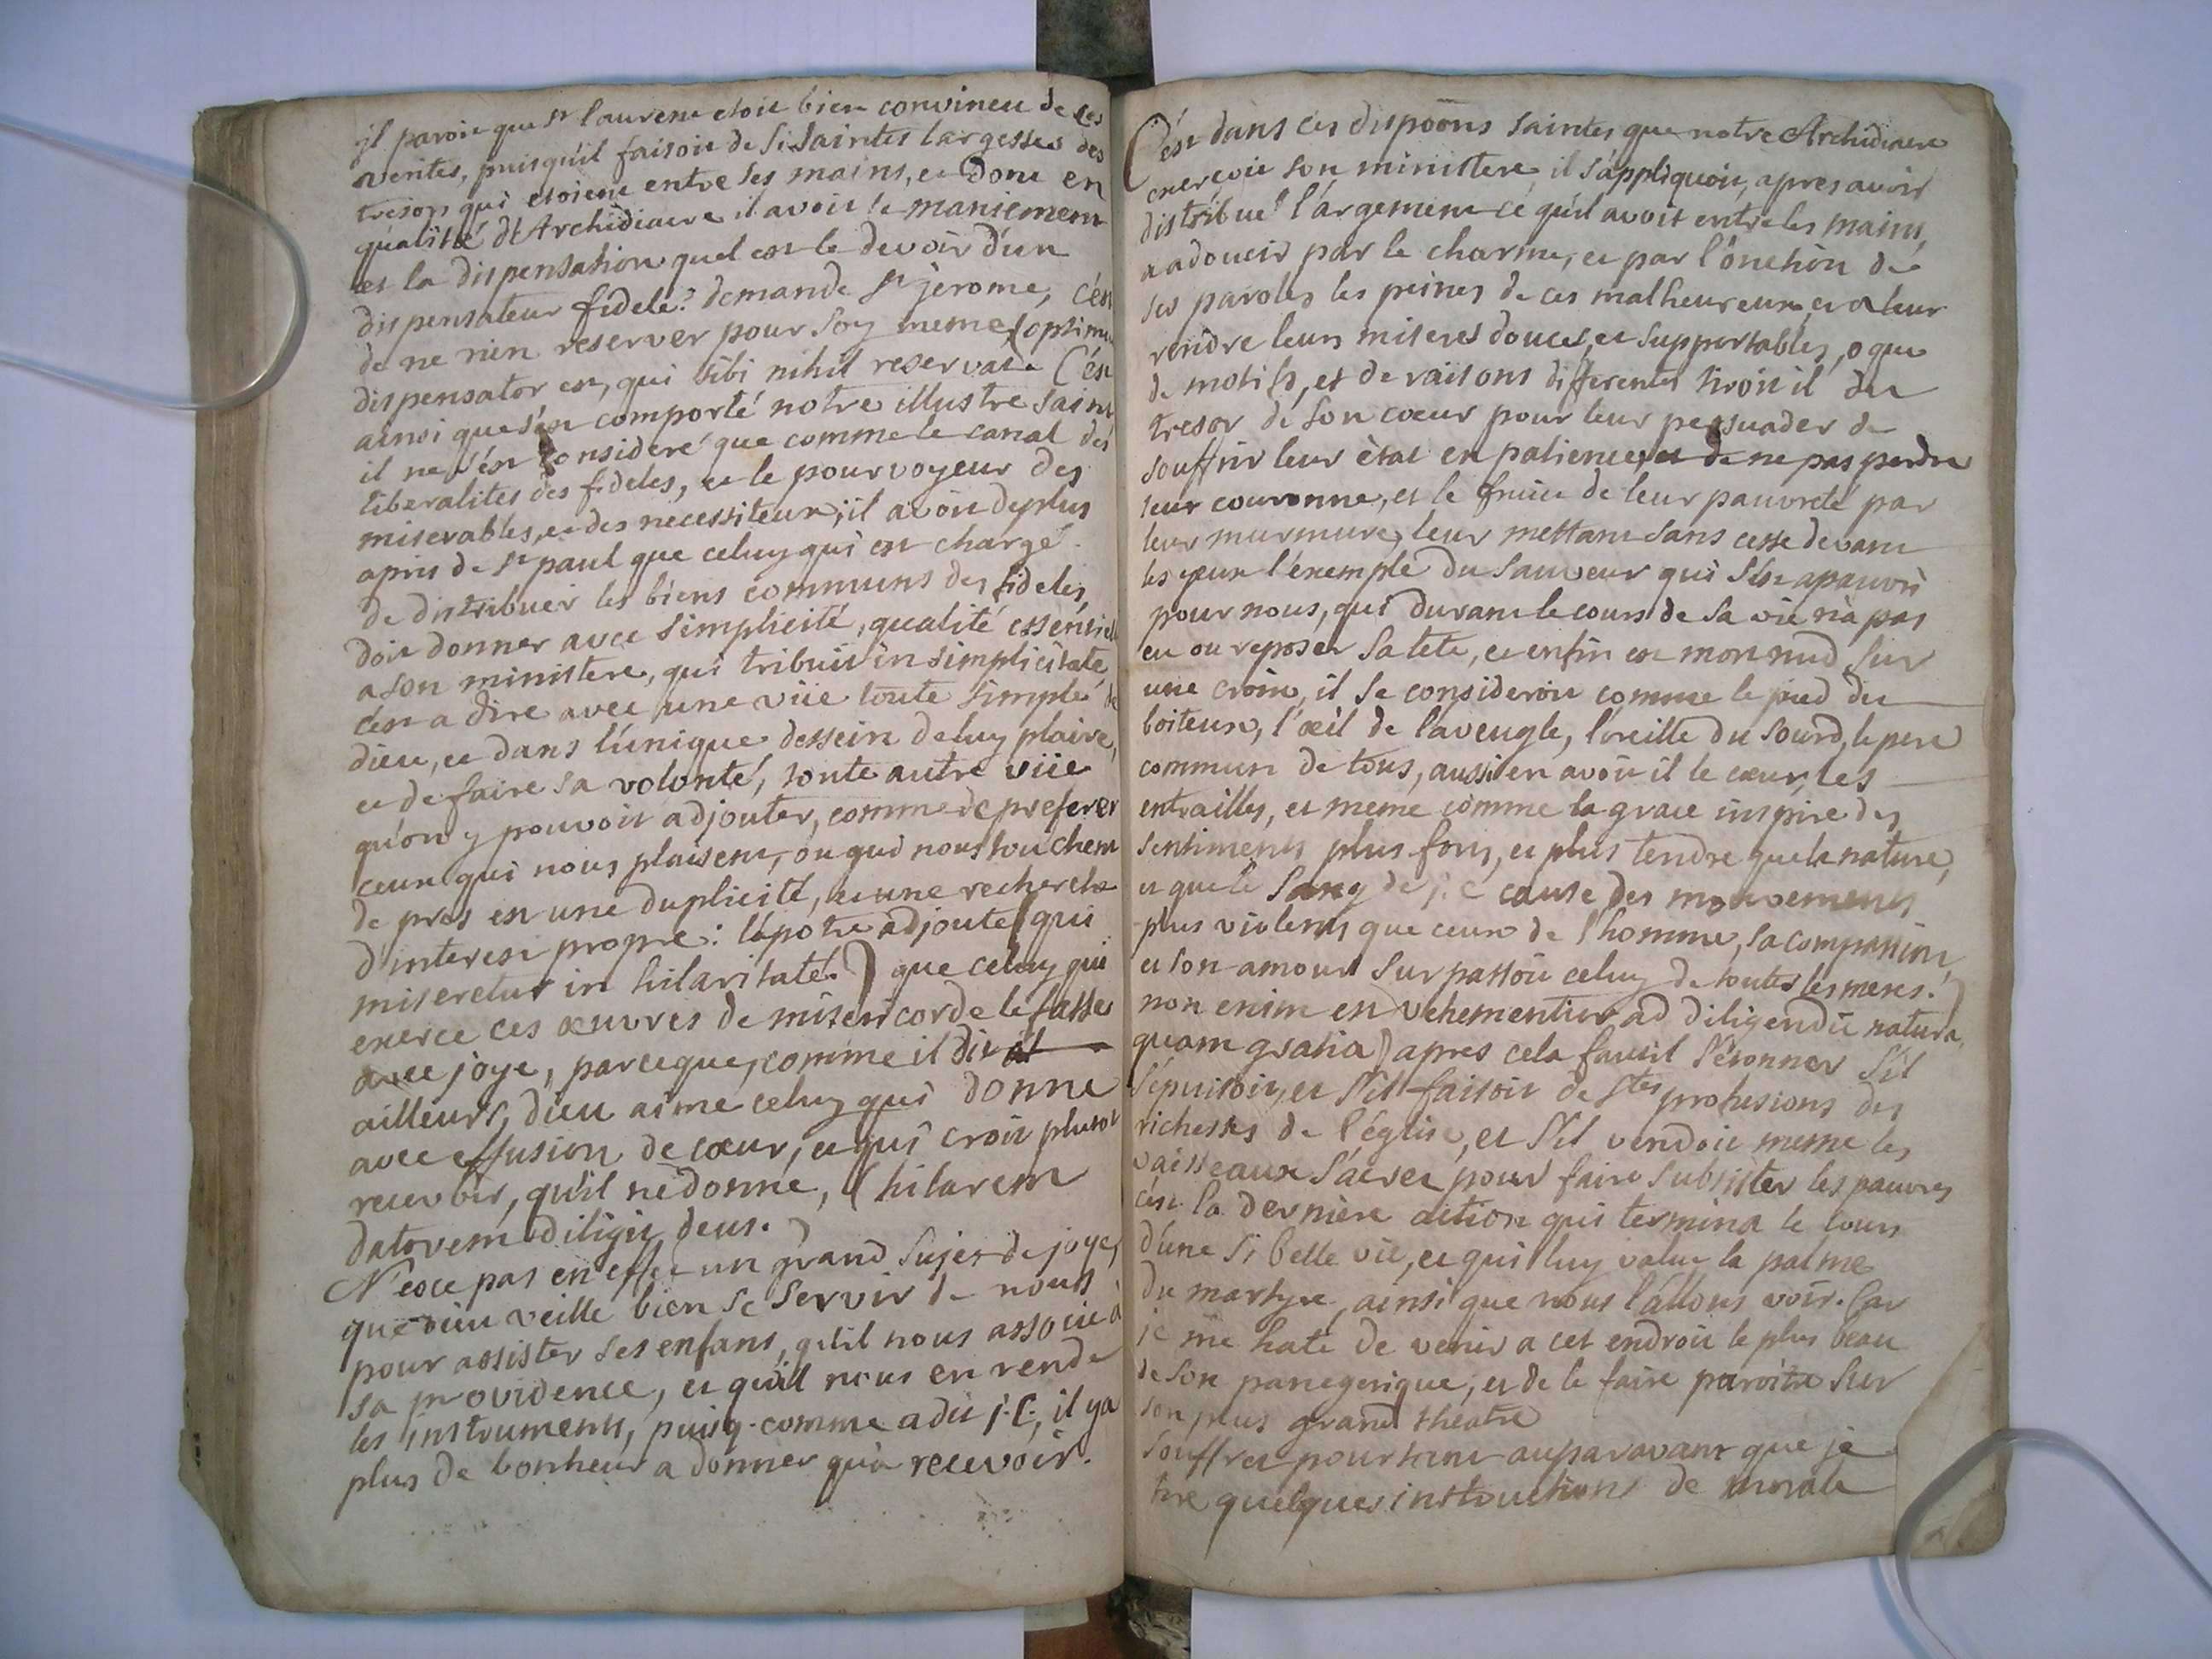 il paroit que st laurent etoit bien convincu de ces
verites, puisqu'il faisoit de si saintes largesses des
tresors qui etoient entre ses mains, et dont en
qualité d'Archidiacre il avoit le maniement
et la dispensation quel est le devoir d'un
dispensateur fidele? demande st jerome, c'est
de ne rien reserver pour soy meme, (optimus
dispensator est, qui sibi nihil reservat. C'est
ainsi que s'est comporté notre illustre saint
il ne s'est consideré que comme le canal des
liberalites des fideles, et le pourvoyeur des
miserables, et des necessiteux; il avoit deplus
apris de st paul que celuy qui est chargé
de distribuer les biens communs des fideles
doit donner avec simplicité, qualité essentielle
a son ministere, qui tribuit in simplicitate
c'est a dire avec une vüe toute simple de
dieu, et dans l'unique dessein de luy plaire,
et de faire sa volonté, toute autre vüe
qu'on y pouvoit adjouter, comme de preferer
ceux qui nous plaisent, ou qui nous touchent
de pres est une duplicité, et une recherche
d'interest propre: l'apotre adjoute (qui
miseretur in hilaritate.) que celuy qui
exerce ces œuvres de misericorde le fasse
avec joye, parceque, comme il dit il
ailleurs, dieu aime celuy qui donne
avec effusion de cœur, et qui croit plutot
recevoir, qu'il ne donne, (hilarem
datorem diligit deus.)
N'esce pas en effet un grand sujet de joye,
que dieu veille bien se servir de nous
pour assister ses enfans, qu'il nous associe à
sa providence, et qu'il nous en rende
les instruments, puisq. comme a dit j.C., il ya
plus de bonheur a donner qu'a recevoir.
C'est dans ces dispoõns saintes que notre Archidiacre
exercoit son ministere, il s'appliquoit, apres avoir
distribué l'argement ce qu'il avoit entre les mains,
a adoucir par le charme, et par l'onction de
ses paroles les peines de ces malheureux, et a leur
rendre leurs miseres douces, et supportables, o que
de motifs, et de raisons differentes tiroit il du
tresor de son cœur pour leur persuader de
souffrir leur ètat en patience, et de ne pas perdre
leur couronne, et le fruit de leur pauvreté par
leur murmure, leur mettant sans cesse devant
les yeux l'exemple du Sauveur qui s'est apauvri
pour nous, qui durant le cours de sa vie n'a pas
eu ou reposer sa tete, et enfin est mort nud sur
une croix, il se consideroit comme le pied du
boiteux, l'œil de l'aveugle, l'oreille du sourd, le pere
commun de tous, aussi en avoit il le cœur, les
entrailles, et meme comme la grace inspire des
sentiments plus forts, et plus tendre que la nature,
et que le sang de j. C cause des mouvements
plus violents que ceux de l'homme, sa compassion,
et son amour surpassoit celuy de toutes les meres.
non enim est vehementior ad diligendũ natura,
quam gratia) apres cela faut il s'etonner s'il
s'epuisoit, et s'il faisoit de stes profusions des
richesses de l'église, et s'il vendoit meme les
vaisseaux sacrez pour faire subsister les pauvres
c'est la derniere action qui termina le cours
d'une si belle vie, et qui luy valut la palme
du martyre, ainsi que nous l'allons voir. Car
je me hate de venir a cet endroit le plus beau
de son panegerique, et de le faire paroitre sur
son plus grand theatre
souffrez pourtant auparavant que je
tire quelques instructions de morale